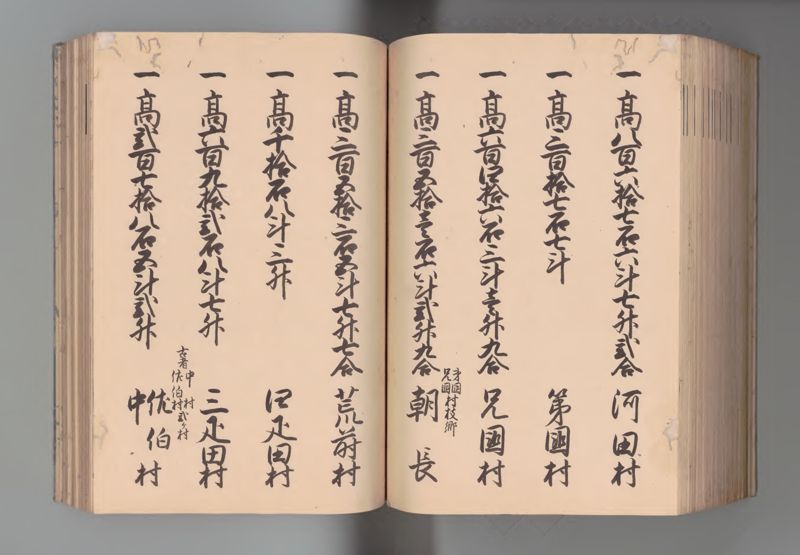 一 高八百六拾七石六斗七升弐合 河田村
一 高三百拾七石七斗 第國村
一 高六百四拾六石三斗壱升九合 兄國村
一 高三百五拾壱石六斗弐升九合 弟國村兄國村枝郷 朝長
一 高三百五拾三石五斗七升七合 荒蒔村
一 高千拾石八斗三升 四疋田村
一 高六百九拾弐石八斗七升 三疋田村
一 高弐百七拾八石五斗弐升 古者中村佐伯村弐ヶ村 佐伯中村